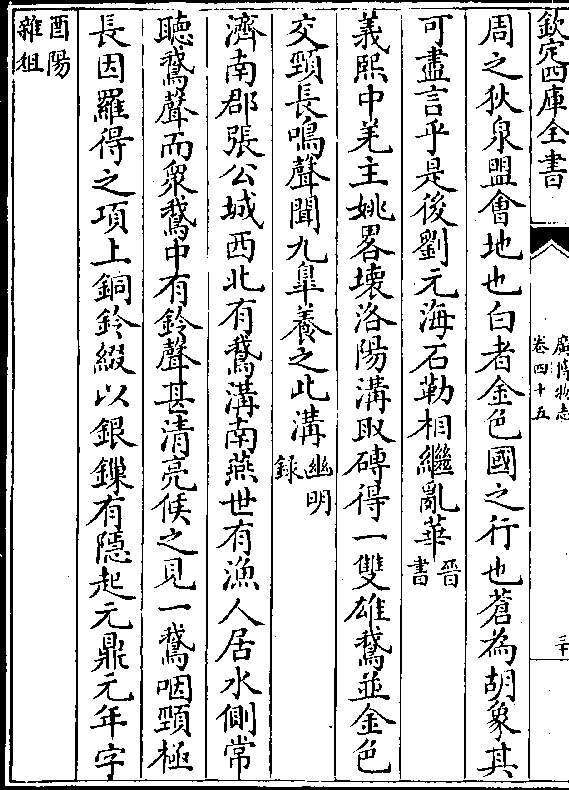 欽定四庫全書
廣博物志
卷四十五
三十
周之狄泉盟㑹地也白者金色國之行也蒼為胡象其
可盡言乎是後劉元海石勒相繼亂華晉書
義熙中羌主姚畧壊洛陽溝取磚得一雙雄鵞並金色
交頸長鳴聲聞九臯養之此溝幽明録
濟南郡張公城西北有鵞溝南燕世有漁人居水側常
聽鵞聲而衆鵞中有鈴聲甚清亮候之見一鵞咽頸極
長因羅得之項上銅鈴綴以銀鏁有隱起元鼎元年字
酉陽雜俎